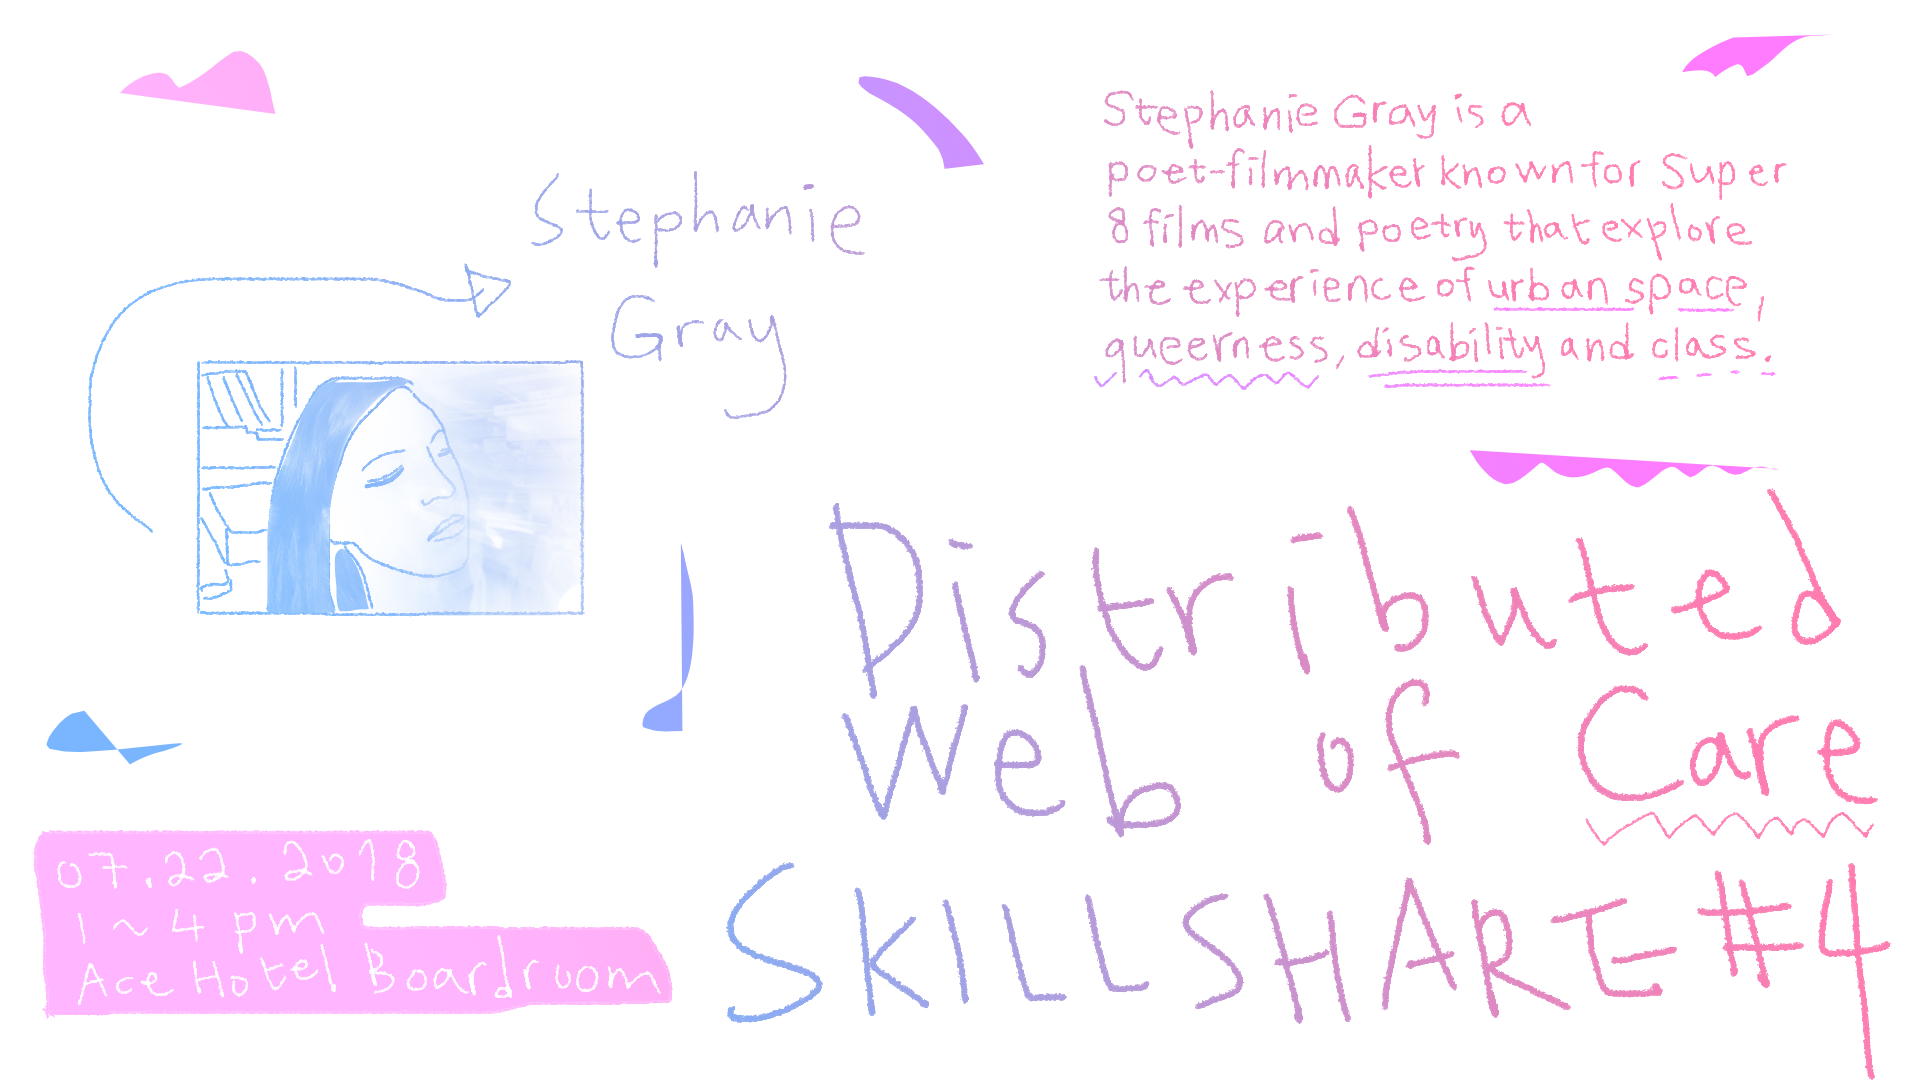 Stephanie
Gray
Stephanie Gray is a
poet-filmmaker known for Super
8 films and poetry that explore
the experience of urban space,
queerness, disability and class.
Distributed
Web of Care
SKILLSHARE #4
07.22.2018
1~4 pm
Ace Hotel Boardroom